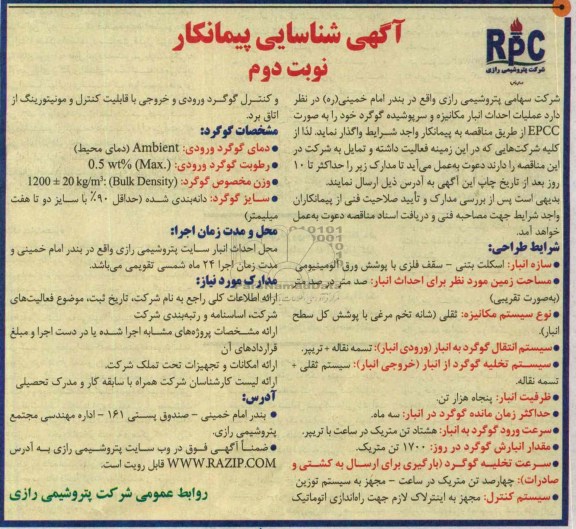 آگهی شناسایی پیمانکار
نوبت دوم
RPC
شرکت پتروشیمی رازی
شرکت سهامی پتروشیمی رازی واقع در بندر امام خمینی(ره) در نظر
دارد عملیات احداث انبار مکانیزه و سرپوشیده گوگرد خود را به صورت
EPCC از طریق مناقصه به پیمانکار واجد شرایط واگذار نماید. لذا از
کلیه شرکت‌هایی که در این زمینه فعالیت داشته و تمایل به شرکت در
این مناقصه را دارند دعوت به‌عمل می‌آید تا مدارک زیر را حداکثر تا ۱۰
روز بعد از تاریخ چاپ این آگهی به آدرس ذیل ارسال نمایند.
بدیهی است پس از بررسی مدارک و تأیید صلاحیت فنی از پیمانکاران
واجد شرایط جهت مصاحبه فنی و دریافت اسناد مناقصه دعوت به‌عمل
خواهد آمد.
شرایط طراحی:
● سازه انبار: اسکلت بتنی – سقف فلزی با پوشش ورق آلومینیومی
● مساحت زمین مورد نظر برای احداث انبار: صد متر در صد متر
(به‌صورت تقریبی)
● نوع سیستم مکانیزه: ثقلی (شانه تخم مرغی با پوشش کل سطح
انبار).
● سیستم انتقال گوگرد به انبار (ورودی انبار): تسمه نقاله + تریپر.
● سیستم تخلیه گوگرد از انبار (خروجی انبار): سیستم ثقلی +
تسمه نقاله.
● ظرفیت انبار: پنجاه هزار تن.
● حداکثر زمان مانده گوگرد در انبار: سه ماه.
● سرعت ورود گوگرد به انبار: هشتاد تن متریک در ساعت با تریپر.
● مقدار انبارش گوگرد در روز: ۱۷۰۰ تن متریک.
● سرعت تخلیه گوگرد (بارگیری برای ارسال به کشتی و
صادرات): چهارصد تن متریک در ساعت – مجهز به سیستم توزین
● سیستم کنترل: مجهز به اینترلاک لازم جهت راه‌اندازی اتوماتیک
و کنترل گوگرد ورودی و خروجی با قابلیت کنترل و مونیتورینگ از
اتاق برد.
مشخصات گوگرد:
● دمای گوگرد ورودی: Ambient (دمای محیط)
● رطوبت گوگرد ورودی: 0.5 wt% (Max.)
● وزن مخصوص گوگرد: (Bulk Density) :1200 ± 20 kg/m³
● سایز گوگرد: دانه‌بندی شده (حداقل ۹۰٪ با سایز دو تا هفت
میلیمتر)
محل و مدت زمان اجرا:
محل احداث انبار سایت پتروشیمی رازی واقع در بندر امام خمینی و
مدت زمان اجرا ۲۴ ماه شمسی تقویمی می‌باشد.
مدارک مورد نیاز:
ارائه اطلاعات کلی راجع به نام شرکت، تاریخ ثبت، موضوع فعالیت‌های
شرکت، اساسنامه و رتبه‌بندی شرکت
ارائه مشخصات پروژه‌های مشابه اجرا شده یا در دست اجرا و مبلغ
قراردادهای آن
ارائه امکانات و تجهیزات تحت تملک شرکت.
ارائه لیست کارشناسان شرکت همراه با سابقه کار و مدرک تحصیلی
آدرس:
● بندر امام خمینی – صندوق پستی ۱۶۱ – اداره مهندسی مجتمع
پتروشیمی رازی.
● ضمناً آگهی فوق در وب سایت پتروشیمی رازی به آدرس
WWW.RAZIP.COM قابل رویت است.
روابط عمومی شرکت پتروشیمی رازی